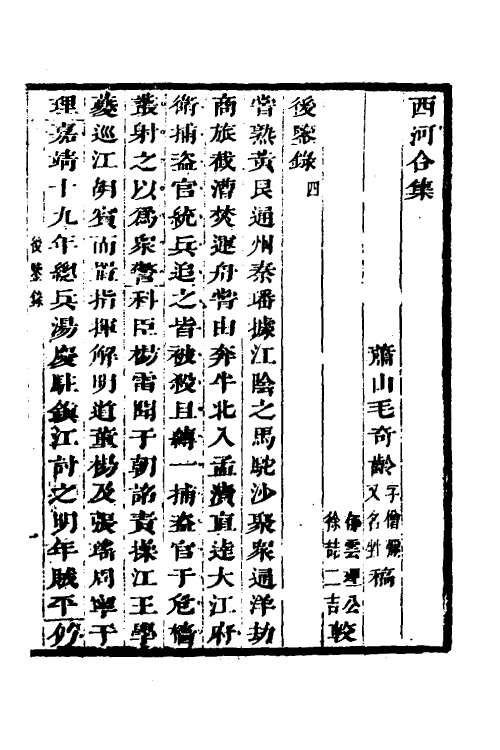 西河合集
蕭山毛奇齡字僧彌又名甡稿
公徐喆二吉較
後鑒錄四
嘗熟黃艮通州秦璠據江陰之馬駝沙聚衆通洋劫
商旅截漕焚運舟嘗由奔牛北入孟瀆直達大江府
衛捕盜官統兵追之皆被殺且縛一捕盜官于危檣
叢射之以爲衆警科臣楊雷聞于朝詔責操江王學
夔巡江胡賓而指揮解明道董楊及張周寧于
理嘉靖十九年總兵湯慶駐鎮江討之明年賊平
後鑒錄